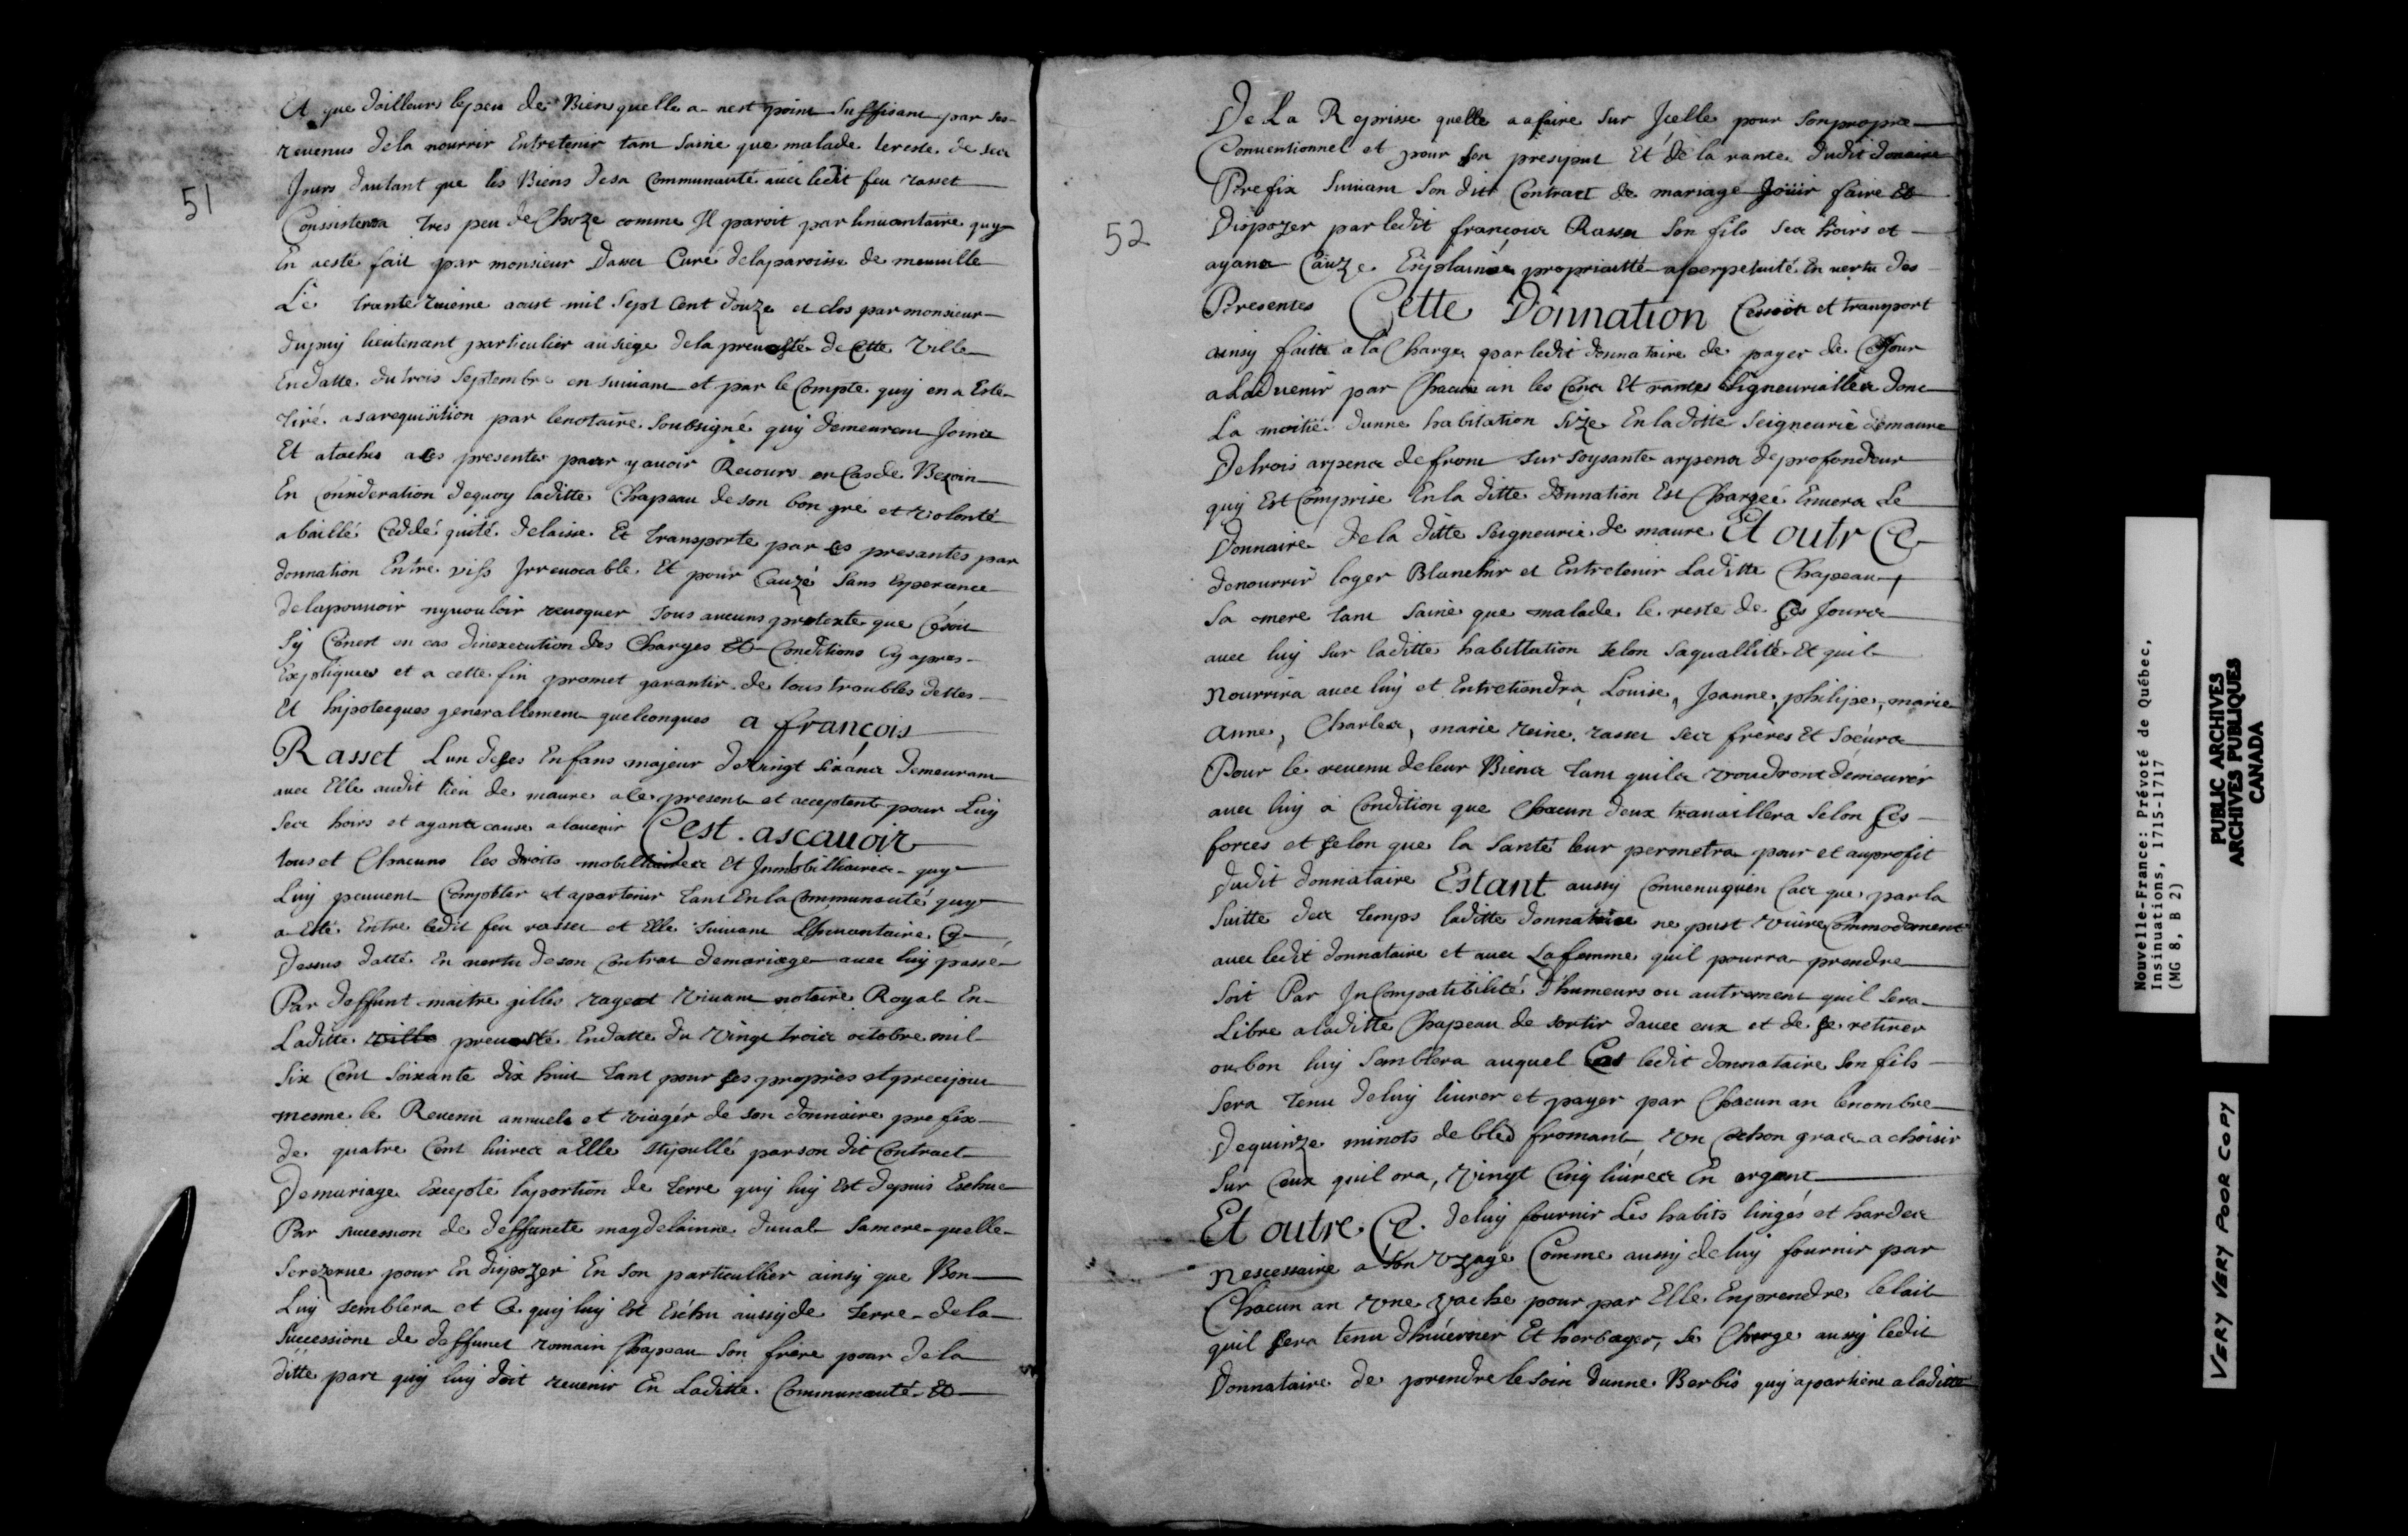 51
Et que dailleurs le peu de Bien quelle a nest point suffisant par ses
revenus dela nourrir Entretenir tant saine que malade le reste de ses
Jours dautant que les Biens desa Communauté avec ledit feu rasset
Conssistent a tres peu de Choze comme Il paroit par linvantaire quy
En a esté fait par monsieur Curé delaparoisse de
Le trante aoust mil sept Cent douze et clos par monsieur
dupuy lieutenant particulier ausiege dela prevosté de Cette Ville
En datte du trois Septembre en suivant et par le Compte quy en a Esté
tiré asarequisition par lenotaire soubsigné quy demeurent Joints
Et atachés a Ces presentes pour y avoir Recours en Cas de Bezoin
En Consideration dequoy laditte Chapeau de son bon gré et volonté
a baillé Ceddé quité delaissé Et transporte par Ces presantes par
donnation Entre vifs Irrevocable Et pour Cauze sans Esperance
delapouvoir nyvouloir revoquer sous aucuns pretexte que Cesoit
Sy Cenest en cas dinexecution des Charges Et Conditions Cy apres
Expliquées et a cette fin promet garantir de tous troubles dettes
Et hipotecques generallement quelconques a françois
Rasset Lun deses Enfans majeur de vingt six ans demeurant
avec Elle audit lieu de maure a ce present et acceptent pour Luy
ses hoirs et ayants cause alavenir Cest ascavoir
tous et Chacuns les droits mobilliaires Et Immobilliaires quy
Luy peuvent Compéter et apartenir tant En la Communauté quy
a Esté Entre ledit feu rasset et Elle suivant LInvantaire Cy
dessus datté En vertu deson Contrat demariage avec luy passé
Par deffunt maitre gilles rageot vivant notaire Royal En
Laditte ville prevosté Endatte du vingt trois octobre mil
six Cent soixante dix huit tant pour ses propres et precijout
mesme le Revenu annuels et viagér de son donnaire prefix
de quatre Cent livres a Elle stipullé parson dit Contract
De mariage Excepté laportion de terre quy luy Est depuis Eschue
Par succession de deffuncte magdelainne duval samere quelle
Serezerve pour En dispozer En son particullier ainsy que Bon
Luy semblera et Ce quy luy Est Eschu aussy de terre dela
Successions de deffunct romain Chapeau son frère pour dela
ditte part quy luy doit revenir En Laditte Communauté Et
52
De La Reprisse quelle a afaire sur Jcelle pour sonpropre
Conventionnel et pour son presiput Et de la rante dudit donaire
Prefix suivant son dit Contract de mariage Joüir faire Et
Dispozer par ledit françois Rasset son fils ses hoirs et
ayans Cauze Enplainne propriaitté aperpetuité En vertu des
Presentes Cette Donnation Cession et transport
ainsy faitte a la Charge par ledit donnataire de payer de Cejour
aLadvenir par Chacun an les Cens Et rantes seigneurialles dont
La moitié dunne habitation size En laditte seigneurie demaure
De trois arpens de front sur soysante arpens de profondeur
quy Est Comprise En la ditte donnation Est Chargée Envers Le
Donnaire de la ditte seigneurie de maure Et outr Ce
denourrir loger Blanchir et Entretenir Laditte Chapeau
sa mere tant saine que malade le reste de Ces Jours
avec luy sur laditte habittation selon saquallité Et quil
Nourrira avec luy et Entretiendra Louise, Jeanne, philipe, marie
anne, Charles, marie reine rasset ses frères Et soeurs
Pour le revenu deleur Biens tant quils voudront demeurér
avec luy a Condition que Chacun deux travaillera selon Ces
forces et selon que la santé leur permetra pour et auprofit
dudit donnataire Estant aussy Convenuquen Cas que par la
suitte des temps laditte donnatrice ne pust vivre Commodement
avec ledit donnataire et avec Lafemme quil pourra prendre
soit Par InCompatibilité d'humeurs ou autrement quil sera
Libre aladitte Chapeau de sortir davec eux et de se retirer
ou bon luy semblera auquel Cas ledit donnataire son fils
sera tenu deluy livrer et payer par Chacun an lenombre
De quinze minots de bled fromant, un Cochon gras a choisir
sur Ceux quil ora, vingt Cinq livres En argent
Et outre Ce deluy fournir Les habits lingés et hardes
Nescessaire a son vzage Comme aussy deluy fournir par
Chacun an vne vache pour par Elle Enprendre lelait
quil sera tenu dhiverner Et herbager, se Charge aussy ledit
Donnataire de prendre lesoin dunne Berbis quy apartient aladitte
Nouvelle-France: Prévoté de Québec,
Insinuations, 1715-1717
(MG 8, B 2)
PUBLIC ARCHIVES
ARCHIVES PUBLIQUES
CANADA
VERY VERY POOR COPY